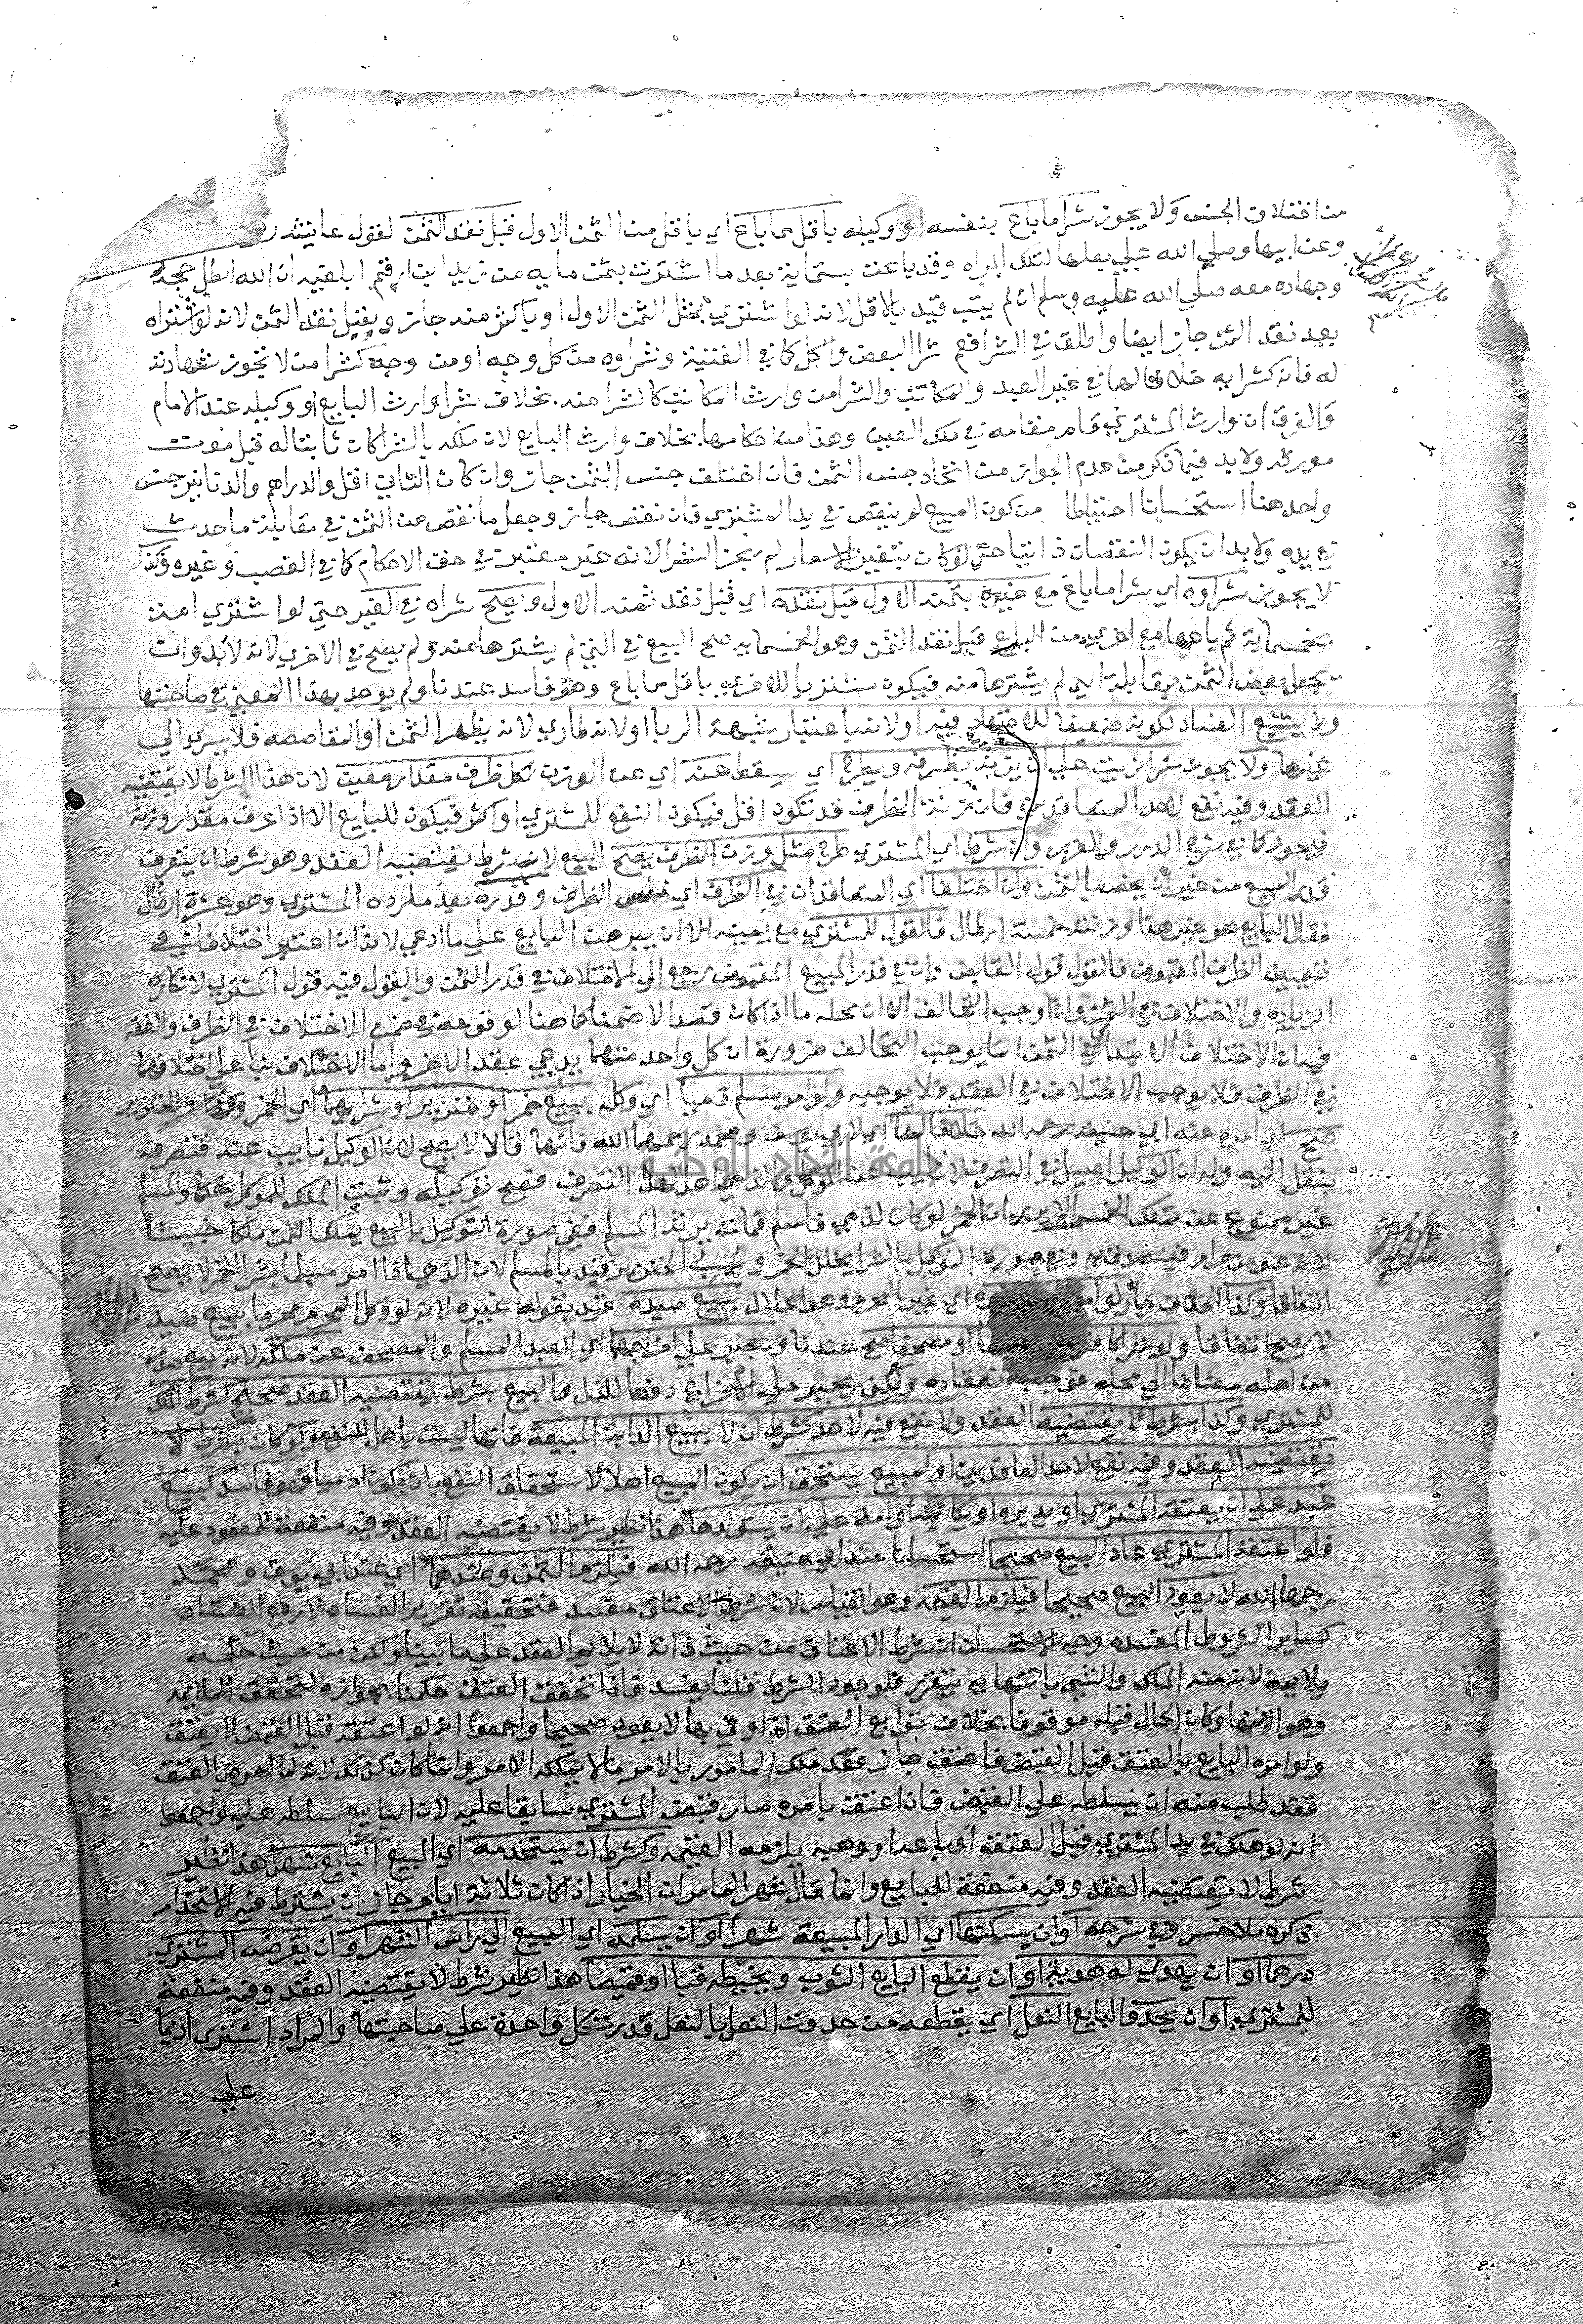 من اختلاف الجنس ولا يجوز شرا ما باع بنفسه او وكيله باقل مما باع اي باقل من الثمن الاول قبل نقد الثمن لقول عايشة رضي
وعن ابيها وصلي الله علي بعلها لتلك المراه وقد باعت بستماية بعد ما اشترت بثمن مايه من زيد ابن ارقم ابلغيه ان الله ابطل حجه
وجهاده مع صلي الله عليه وسلم ان لم يتب قيد بالاقل لانه لو اشتري بمثل الثمن الاول او باكثر منه جاز وبقبل نقد الثمن لانه لو اشتراه
بعد نقد الثمن جاز ايضا واطلق في الشرا فعم شرا البعض والكل كما في القنية وشراوه من كل وجه او من وجه كشرا من لا تجوز شهادته
له فانه كشرايه خلافا لهما في غير العبد والمكاتب والشرا من وارث المكانت كالشرا منه بخلاف شرا وارث البايع او وكيله عند الامام
والفرق ان وارث المشتري قام مقامه في ملك العين وهذا من احكامها بخلاف وارث البايع لان ملكه بالشرا كان ثابتا له قبل موت
مورثه ولا بد فيما ذكر من عدم الجواز من اتحاد جنس الثمن فان اختلف جنس الثمن جاز وان كان الثاني اقل والدراهم والدنانير جنس
واحد هنا استحسانا احتياطا من كون المبيع لم ينقص في يد المشتري فان نقص جاز وجعل ما نقص من الثمن في مقابلة ما حدث
في يده ولا بد ان يكون النقصان ذاتيا حتي لو كان بتغير الاسعار لم يجز الشرا لانه غير معتبر في حق الاحكام كما في الغصب وغيره وكذا
لا يجوز شراوه اي شرا ما باع مع غيره بثمنه الاول قبل نقده اي قبل نقد ثمنه الاول ويصح شراه في الغير حتي لو اشتري امة
بخمسماية ثم باعها مع اخري من البايع قبل نقد الثمن وهو الخمسمايه صح البيع في التي لم يشترها منه ولم يصح في الاخري لانه لا بد وان
يجعل بعض الثمن مقابلة التي لم يشترها منه فيكون مشتريا للاخري باقل مما باع وهو فاسد عندنا ولم يوجد هذا المعني في صاحبتها
ولا يشيع الفساد لكونه ضعيفا للاجتهاد فيه او لانه باعتبار شبهة الربا او لانه طاري لانه يظهر الثمن او المقاصصه فلا يسري الي
غيرها ولا يجوز شرا زيت علي ان يزنه بظرفه ويطرح اي يسقط عنه اي عن الوزن لكل ظرف مقدار معين لان هذا الشرط لا يقتضيه
العقد وفيه نفع لاحد المتعاقدين فان زنة الظرف قد تكون اقل فيكون النفع للمشتري او اكثر فيكون للبايع الا اذا عرف مقدار وزنه
فيجوز كما في شرح الدرر والغرر وان شرط اي المشتري طرح مثل وزن الظرف يصح البيع لانه شرط يقتضيه العقد وهو شرط ان يتعرف
قدر المبيع من غير ان يخصها الثمن وان اختلفا اي المتعاقدان في الظرف اي نفس الظرف وقدره بعد ما رده المشتري وهو عشرة ارطال
فقال البايع هو غير هذا وزنته خمسة ارطال فالقول للمشتري مع يمينه الا ان يبرهن البايع علي ما ادعي لانه ان اعتبر اختلافا في
تعيين الظرف المقبوض فالقول قول القابض وان في قدر المبيع المقبوض رجع الي الاختلاف في قدر الثمن والقول فيه قول المشتري لانكاره
الزياده والاختلاف في الثمن وان اوجب التخالف الا ان محله ما اذا كان قصدا لا ضمنا كما هنا لوقوعه في ضمن الاختلاف في الظرف والفقه
فيه ان الاختلاف الابتدايي في الثمن انما يوجب التحالف ضرورة ان كل واحد منهما يدعي عقد الاخر واما الاختلاف بنا علي اختلافهما
في الظرف فلا يوجب الاختلاف في العقد فلا يوجبه ولو امر مسلم ذميا اي وكله ببيع خمر او خنزير او شرايهما اي الخمر والخنزير
صح اي امره عند ابي حنيفه رحمه الله خلافا لهما اي لابي يوسف ومحمد رحمهما الله فانهما قالا لا يصح لان الوكيل نايب عنه فتصرفه
ينقل اليه وله ان الوكيل اصيل في التصرف لا نايب عن الموكل والذمي اهل لهذا التصرف فصح توكيله وثبت الملك للموكل حكما والمسلم
غير ممنوع عن تملك الخمر الا يري ان الخمر لو كان لذمي فاسلم فمات يرثه المسلم ففي صورة التوكيل بالبيع يملك الثمن ملكا خبيثا
لانه عوض حرام فيتصدق به وفي صورة التوكيل بالشرا يخلل الخمر ويسيب الخنزير قيد بالمسلم لان الذمي اذا امر مسلما بشرا الخمر لا يصح
اتفاقا وكذا الخلاف جاز لو امر اي غير المحرم وهو الحلال ببيع صيده قيد بقوله غيره لانه لو وكل المحرم محرما ببيع صيد
لا يصح اتفاقا ولو شرا كافر او مصحفا صح عندنا ويجبر علي اخراجهما اي العبد المسلم والمصحف عن ملكه لانه بيع صدر
من اهله مضافا الي محله فوجب انعقاده ولكن يجبر علي الاخراج دفعا للذل والبيع بشرط يقتضيه العقد صحيح كشرط الملك
للمشتري وكذا بشرط لا يقتضيه العقد ولا نفع فيه لاحد كشرط ان لا يبيع الدابة المبيعة فانها ليست باهل للنفع ولو كان بشرط لا
يقتضيه العقد وفيه نفع لاحد العاقدين او لمبيع يستحق ان يكون المبيع اهلا لاستحقاق النفع بان يكون ادميا فهو فاسد كبيع
عبد علي ان يعتقه المشتري او يدبره او يكاتبه او امة علي ان يستولدها هذا نظير شرط لا يقتضيه العقد وفيه منفعة للمعقود عليه
فلو اعتقه المشتري عاد البيع صحيحا استحسانا عند ابي حنيفه رحمه الله فيلزمه الثمن وعندهما اي عند ابي يوسف ومحمد
رحمهما الله لا يعود البيع صحيحا فيلزمه القيمة وهو القياس لان شرط الاعتاق مفسد فتحقيقه تقرير الفساد لا رفع الفساد
كساير الشروط المفسده وجه الاستحسان ان شرط الاعتاق من حيث ذاته لا يلايم العقد علي ما بينا ولكن من حيث حكمه
يلايمه لانه منه الملك والشي بانتهايه يتقرر فلوجود الشرط قلنا يفسد فاذا تحقق العتق حكمنا بجوازه لتحقق الملايمه
وهو الانتها وكان الحال قبله موقوفا بخلاف توابع العتق اذا وفي بها لا يعود صحيحا واجمعوا انه لو اعتقه قبل القبض لا يعتق
ولو امره البايع بالعتق قبل القبض فاعتق جاز فقد ملك المامور بالامر ما لا يملكه الامر وانما كان كذلك لانه لما امره بالعتق
فقد طلب منه ان يسلطه علي القبض فاذا اعتق بامره صار قبض المشتري سابقا عليه لان البايع سلطه عليه واجمعوا
انه لو هلك في يد المشتري قبل العتق او باعه او وهبه يلزمه القيمه وكشرط ان يستخدمه اي المبيع البايع شهرا هذا نظير
شرط لا يقتضيه العقد وفيه منفعة للبايع وانما قال شهرا لما مر ان الخيار اذا كان ثلاثة ايام جاز ان يشترط فيه الاستخدام
ذكره ملا خسرو في شرحه او ان يسكنها اي الدار المبيعة شهرا او ان يسلمه اي المبيع الي راس الشهر او ان يقرضه المشتري
درهما او ان يهدي له هدية او ان يقطع البايع الثوب ويخيطه قبا او قميصا هذا نظير شرط لا يقتضيه العقد وفيه منفعة
للمشتري او ان يحذو البايع النعل اي يقطعه من حذوت النعل بالنعل قدرت كل واحدة علي صاحبتها والمراد اشتري اديما
علي